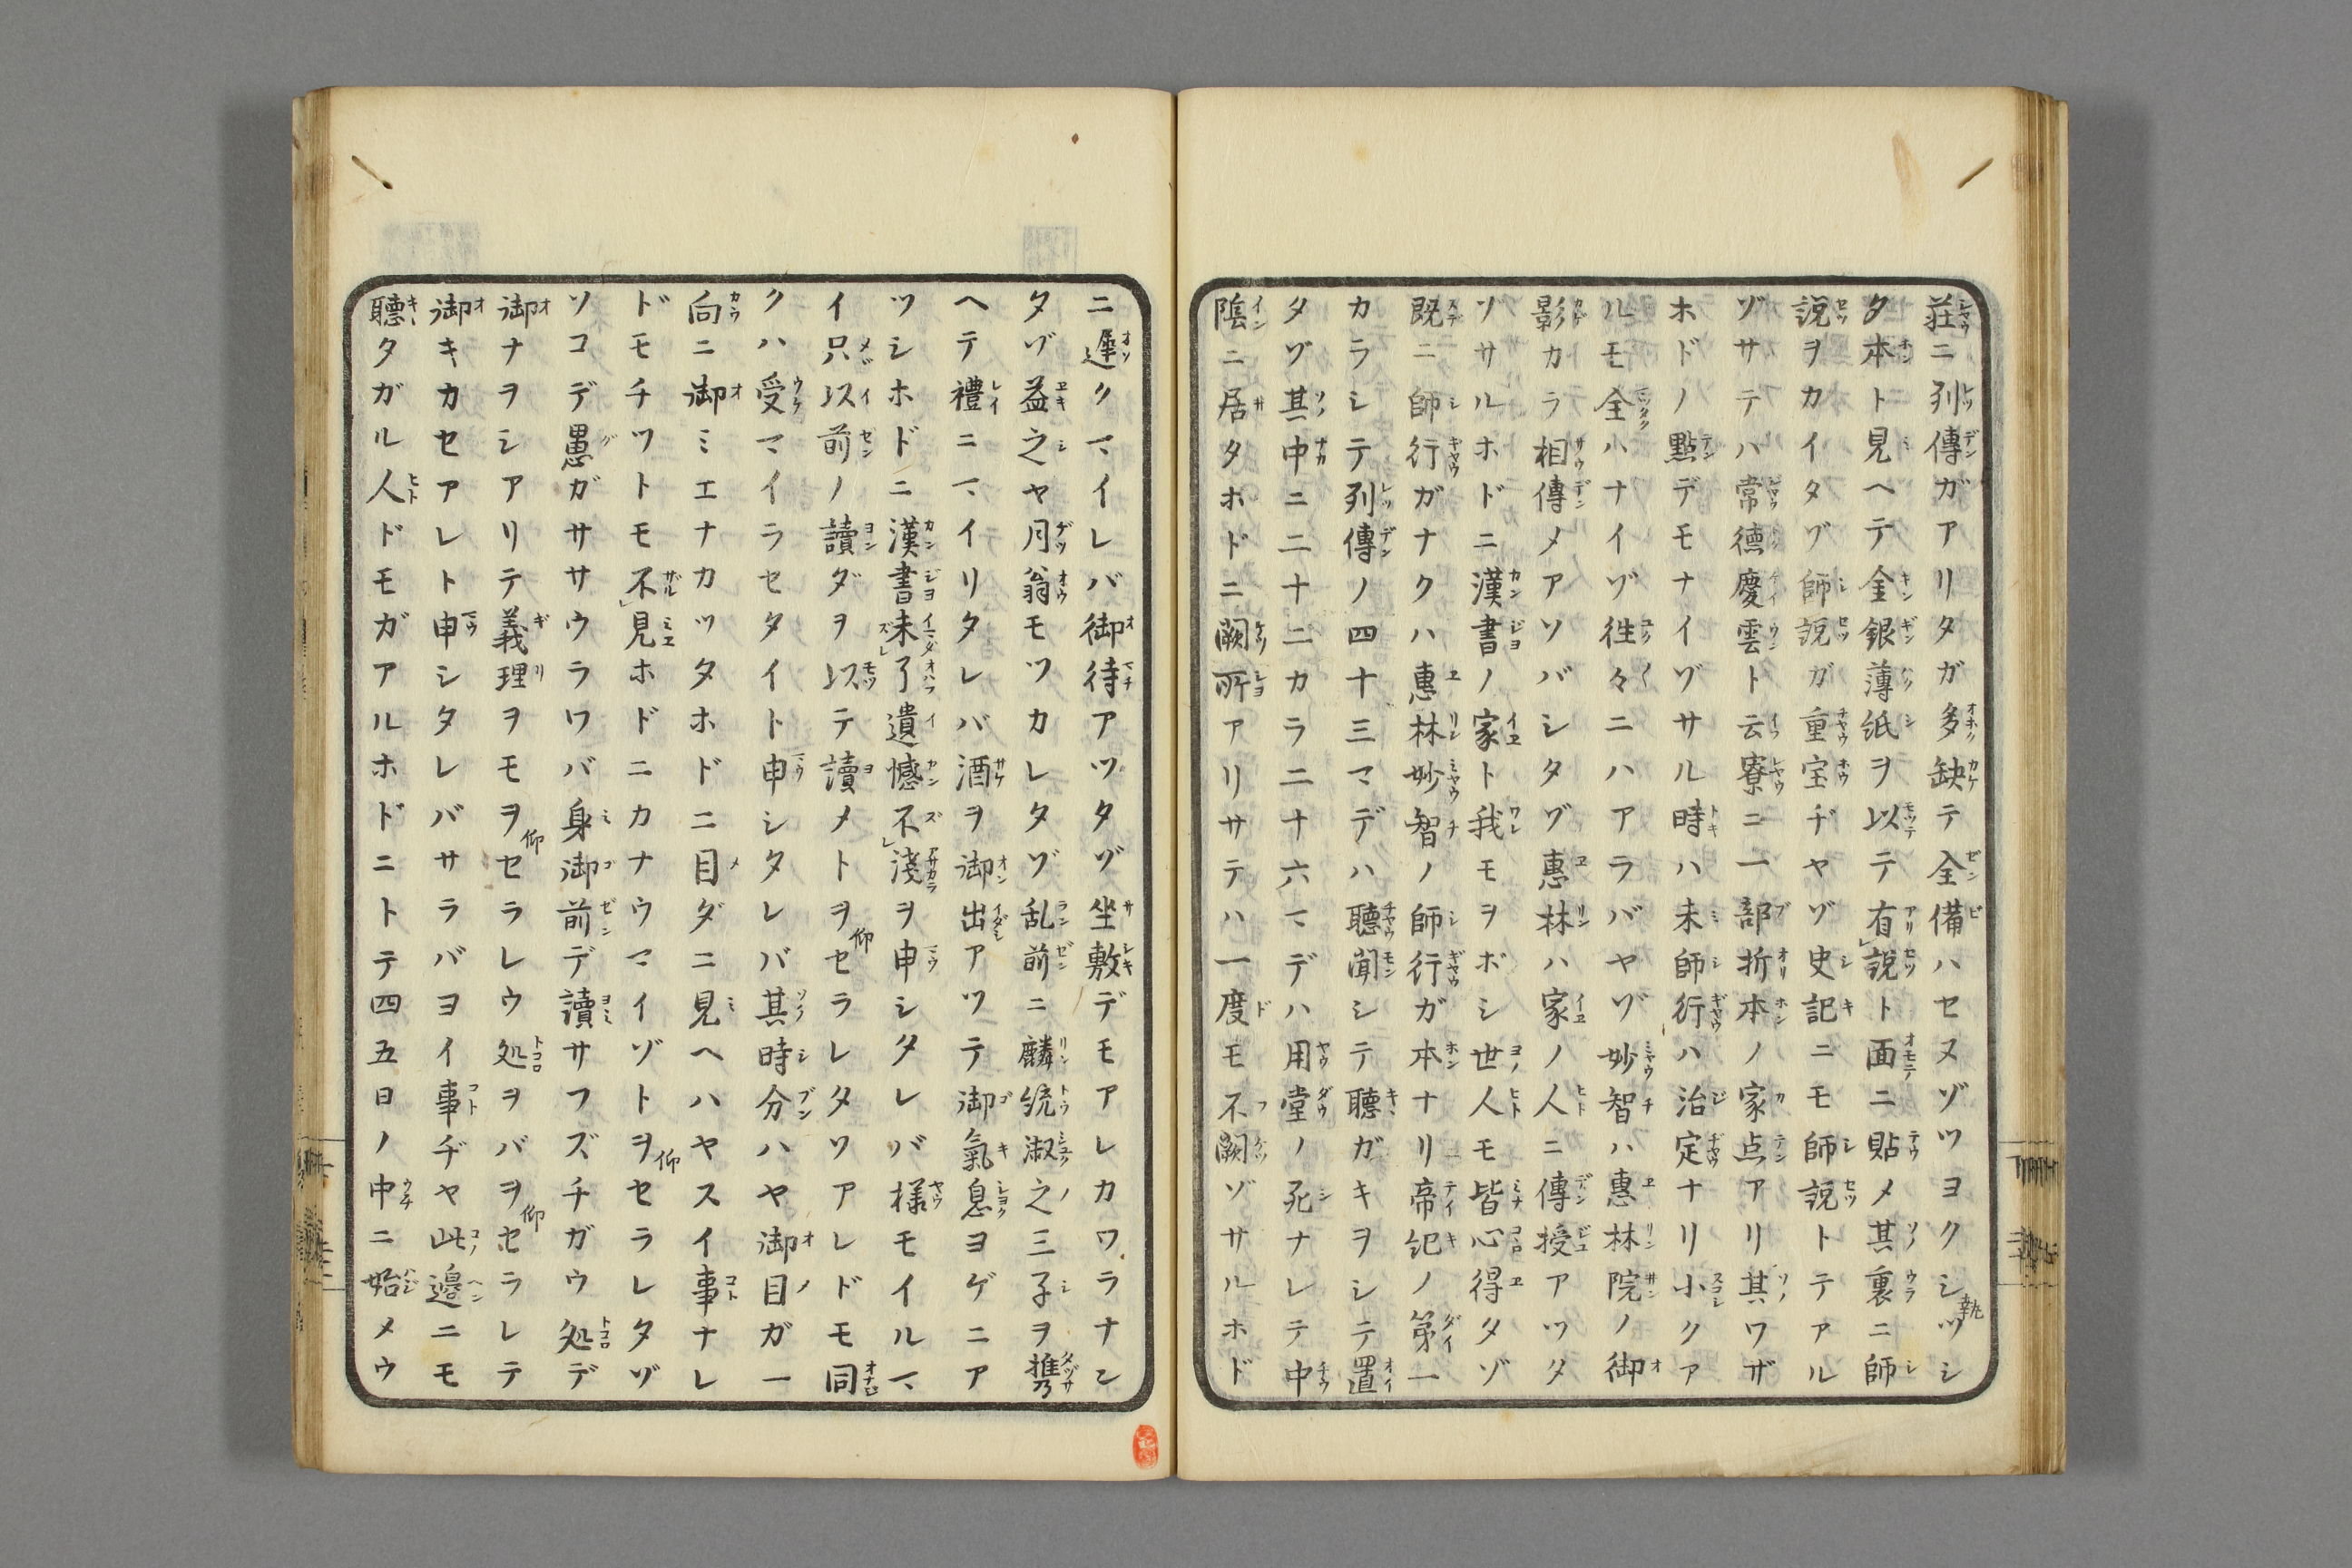 莊ニ列傳ガアリタガ多缺テ全備ハセヌゾツヨクシツシ
タ本ト見ヘテ金銀薄紙ヲ以テ有説ト面ニ貼メ其裏ニ師
説ヲカイタゾ師説ガ重宝ヂヤゾ史記ニモ師説トテアル
ゾサテハ常徳慶雲ト云寮ニ一部折本ノ家点アリ其ワザ
ホドノ點デモナイゾサル時ハ未師行ハ治定ナリ小クア
ルモ全ハナイゾ徃々ニハアラバヤゾ妙智ハ惠林院ノ御
影カラ相傳メアソバシタゾ惠林ハ家ノ人ニ傳授アツタ
ゾサルホドニ漢書ノ家ト我モヲボシ世人モ皆心得タゾ
既ニ師行ガナクハ惠林妙智ノ師行ガ本ナリ帝紀ノ第一
カラシテ列傳ノ四十三マデハ聽聞シテ聽ガキヲシテ置
タゾ其中ニ二十二カラ二十六マデハ用堂ノ死ナレテ中
陰ニ居タホドニ闕所アリサテハ一度モ不闕ゾサルホド
ニ遲クマイレバ御待アツタゾ坐敷デモアレカワラナン
タゾ益之ヤ月翁モツカレタゾ乱前ニ麟統淑之三子ヲ携
ヘテ禮ニマイリタレバ酒ヲ御出アツテ御氣息ヨゲニア
ツシホドニ漢書未了遺憾不淺ヲ申シタレバ様モイルマ
イ只以前ノ讀ダヲ以テ讀メトヲセラレタソアレドモ同
クハ受マイラセタイト申シタレバ其時分ハヤ御目ガ一
向ニ御ミエナカツタホドニ目ダニ見ヘハヤスイ事ナレ
ドモチツトモ不見ホドニカナウマイゾトヲセラレタゾ
ソコデ愚ガササウラワバ身御前デ讀サフズチガウ処デ
御ナヲシアリテ義理ヲモヲセラレウ処ヲバヲセラレテ
御キカセアレト申シタレバサラバヨイ事ヂヤ此邉ニモ
聽タガル人ドモガアルホドニトテ四五日ノ中ニ始メウ